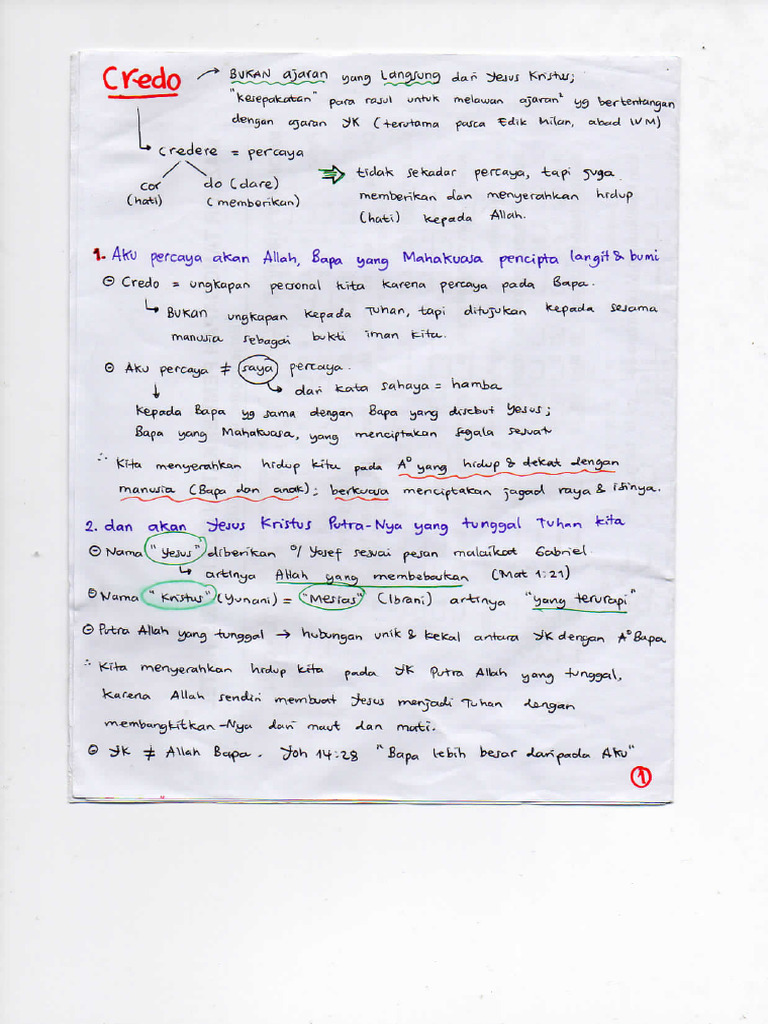 Credo → BUKAN ajaran yang Langsung dari Yesus Kristus;
"kesepakatan" para rasul untuk melawan ajaran² yg bertentangan
dengan ajaran YK (terutama pasca Edik Milan, abad IV M)
credere = percaya
cor do (dare) ⇒ tidak sekadar percaya, tapi juga
(hati) (memberikan) memberikan dan menyerahkan hidup
(hati) kepada Allah.
1. Aku percaya akan Allah, Bapa yang Mahakuasa pencipta langit & bumi
⊖ Credo = ungkapan personal kita karena percaya pada Bapa.
↳ BUKAN ungkapan kepada Tuhan, tapi ditujukan kepada sesama
manusia sebagai bukti iman kita.
⊖ Aku percaya ≠ saya percaya.
↓ ↳ dari kata sahaya = hamba
kepada Bapa yg sama dengan Bapa yang disebut Yesus;
Bapa yang Mahakuasa, yang menciptakan segala sesuatu
∴ Kita menyerahkan hidup kita pada A° yang hidup & dekat dengan
manusia (Bapa dan anak); berkuasa menciptakan jagad raya & isinya.
2. dan akan Yesus Kristus Putra-Nya yang tunggal Tuhan kita
⊖ Nama "Yesus" diberikan o/ Yosef sesuai pesan malaikat Gabriel
↳ artinya Allah yang membebaskan (Mat 1:21)
⊖ Nama "Kristus" (Yunani) = "Mesias" (Ibrani) artinya "yang terurapi"
⊖ Putra Allah yang tunggal → hubungan unik & kekal antara YK dengan A° Bapa
∴ Kita menyerahkan hidup kita pada YK Putra Allah yang tunggal,
karena Allah sendiri membuat Yesus menjadi Tuhan dengan
membangkitkan-Nya dari maut dan mati.
⊖ YK ≠ Allah Bapa. Yoh 14:28 "Bapa lebih besar daripada Aku"
1